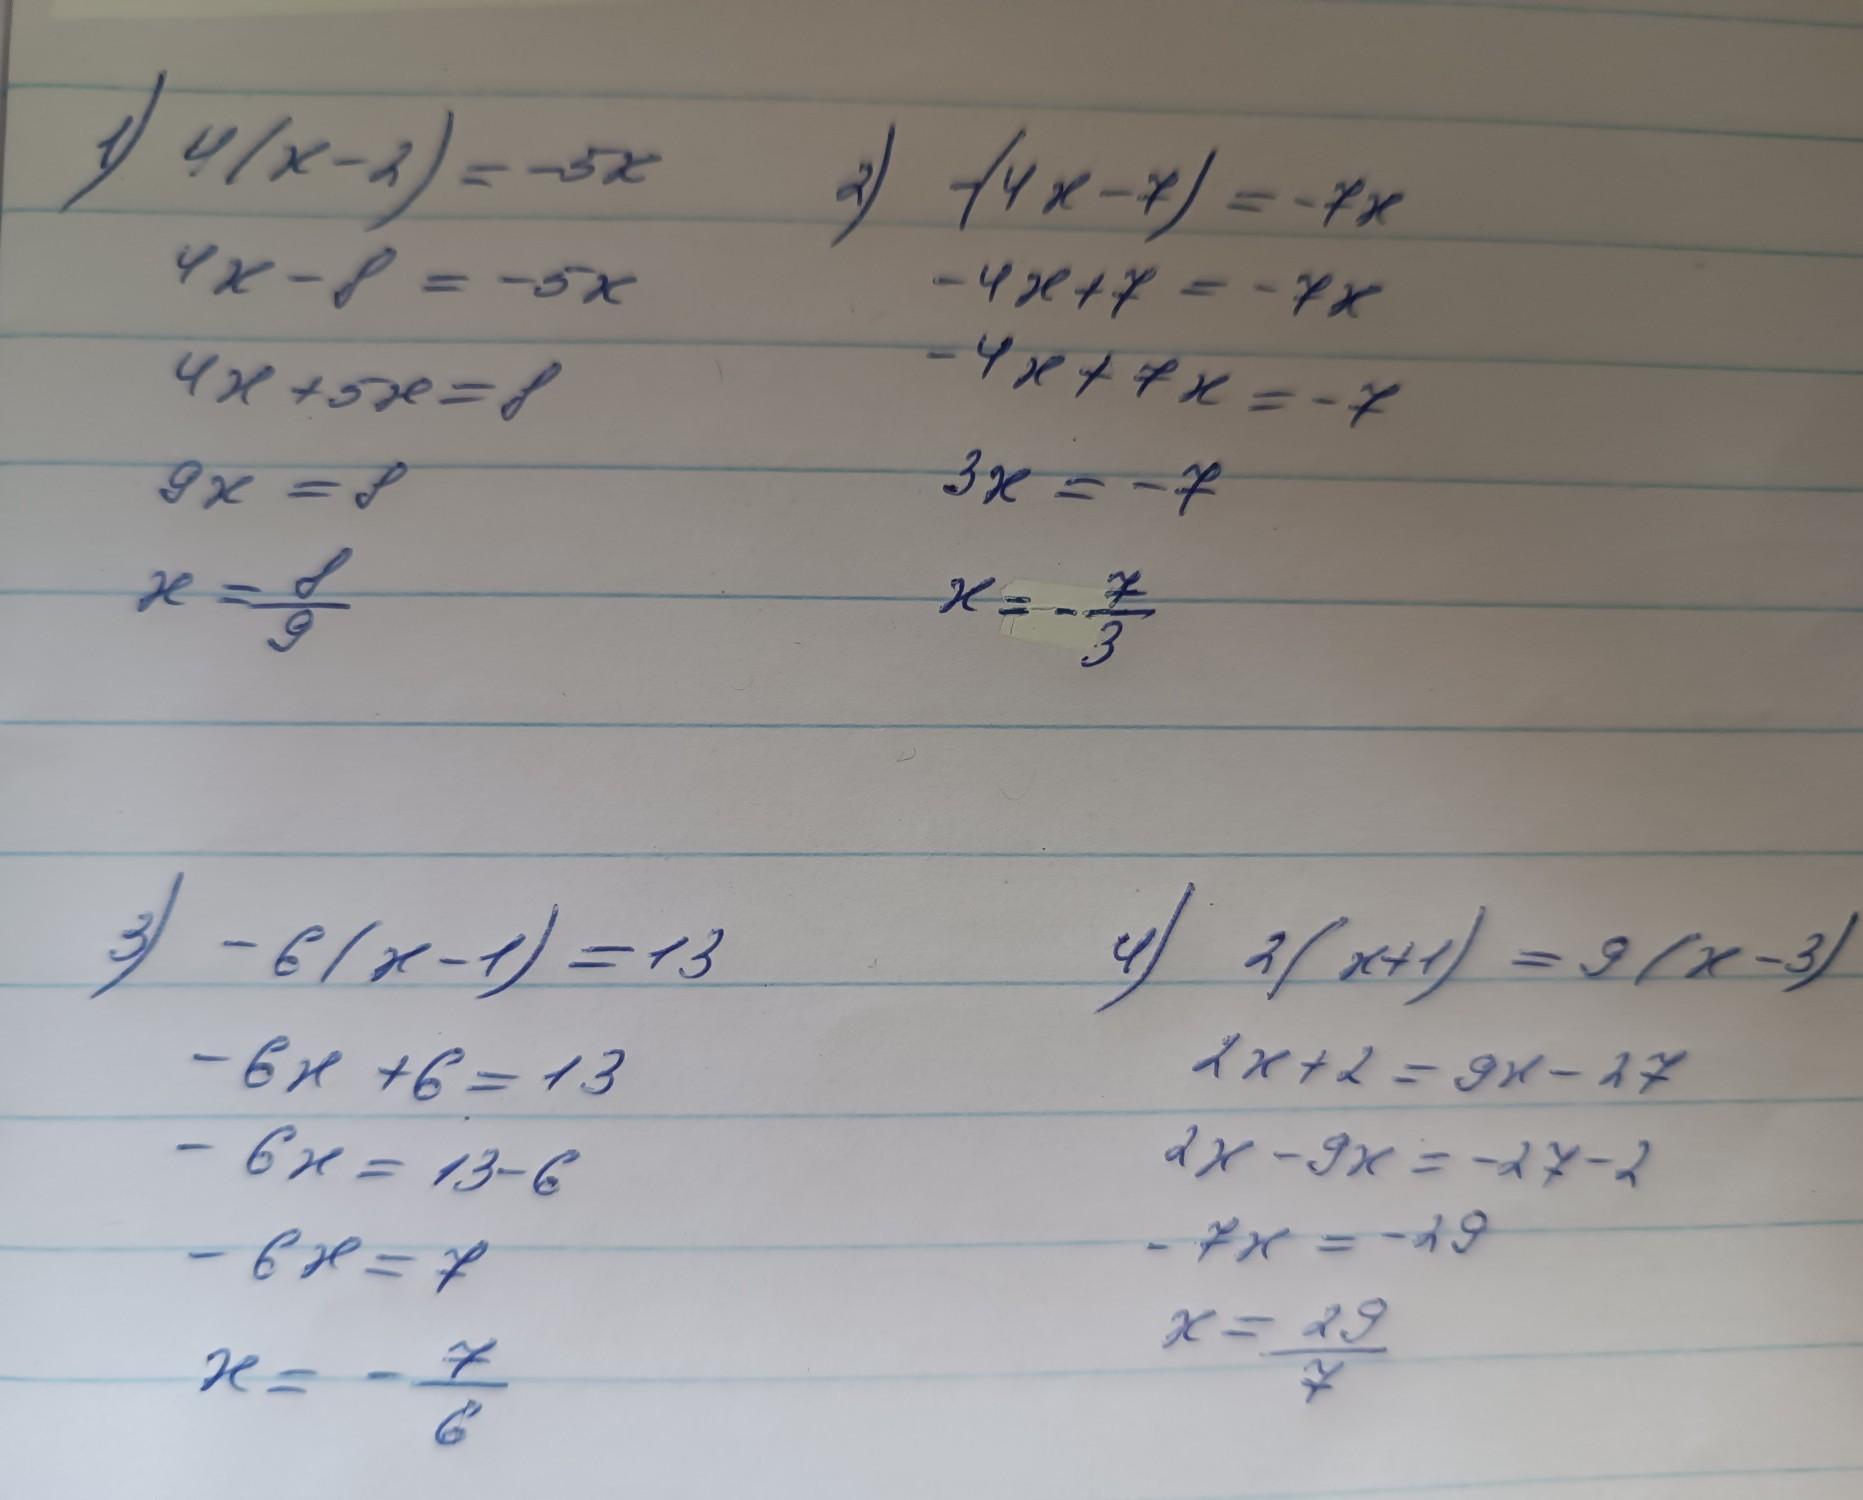 1) 4(x-2) = -5x
4x - 8 = -5x
4x + 5x = 8
9x = 8
x = 8/9
2) -(4x-7) = -7x
-4x+7 = -7x
-4x+7x = -7
3x = -7
x = -7/3
3) -6(x-1) = 13
-6x +6 = 13
-6x = 13-6
-6x = 7
x = -7/6
4) 2(x+1) = 9(x-3)
2x+2 = 9x-27
2x-9x = -27-2
-7x = -29
x = 29/7